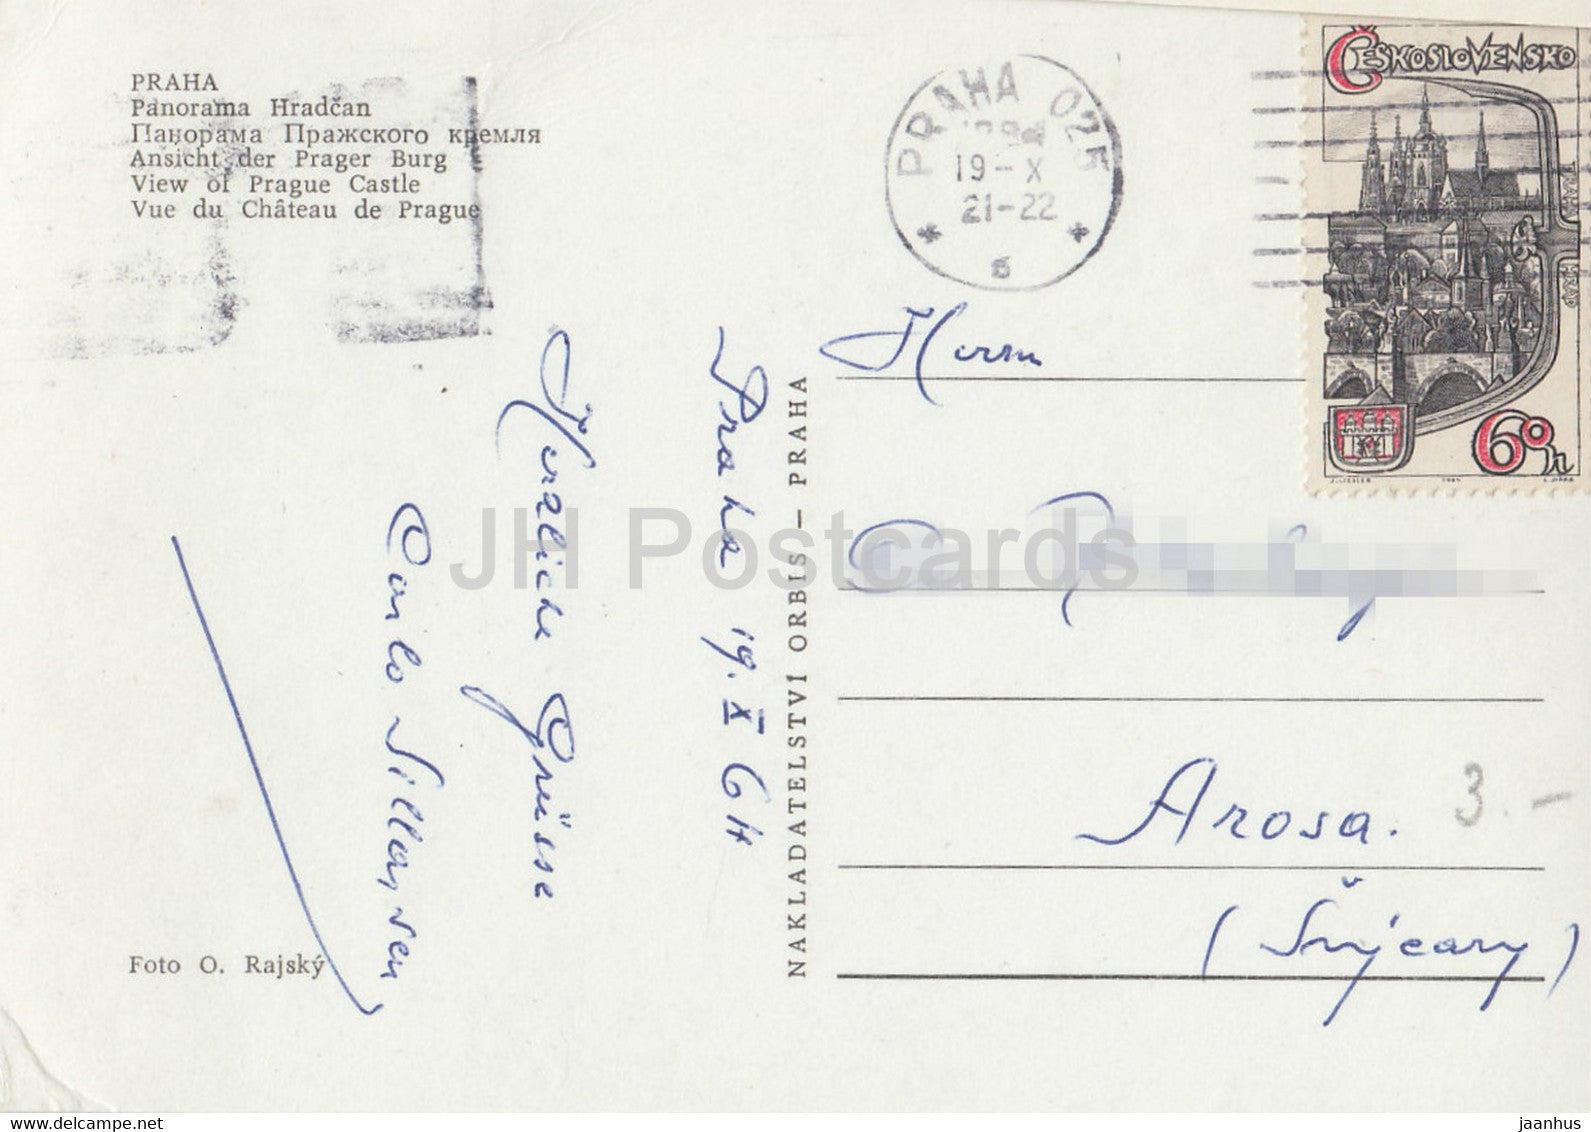 PRAHA
Panorama Hradčan
Панорама Пражского кремля
Ansicht der Prager Burg
View of Prague Castle
Vue du Château de Prague
PRAHA 025
19-X
21-22
6
ČESKOSLOVENSKO
PRAŽSKÝ HRAD
60h
Praha 19. X 64
Herzliche Grüsse
Carlo
Herrn
Arosa.
(Švýcary)
3.-
NAKLADATELSTVÍ ORBIS – PRAHA
Foto O. Rajský
JH Postcards
www.delcampe.net
jaanhus